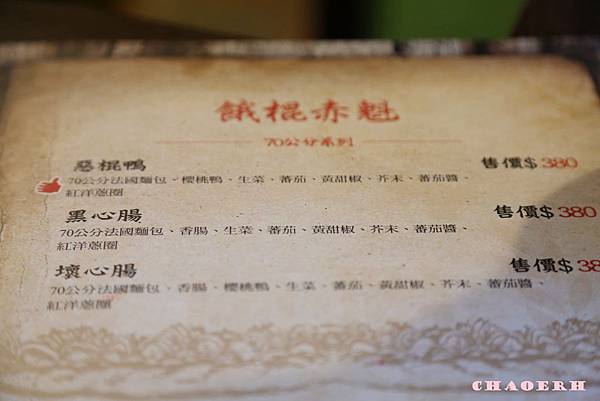 餓棍赤魁
70公分系列
惡棍鴨 售價$380
70公分法國麵包、櫻桃鴨、生菜、蕃茄、黃甜椒、芥末、蕃茄醬、
紅洋蔥圈
黑心腸 售價$380
70公分法國麵包、香腸、生菜、蕃茄、黃甜椒、芥末、蕃茄醬、
紅洋蔥圈
壞心腸 售價$38
70公分法國麵包、香腸、櫻桃鴨、生菜、蕃茄、黃甜椒、芥末、蕃茄醬、
紅洋蔥圈
CHAOERH